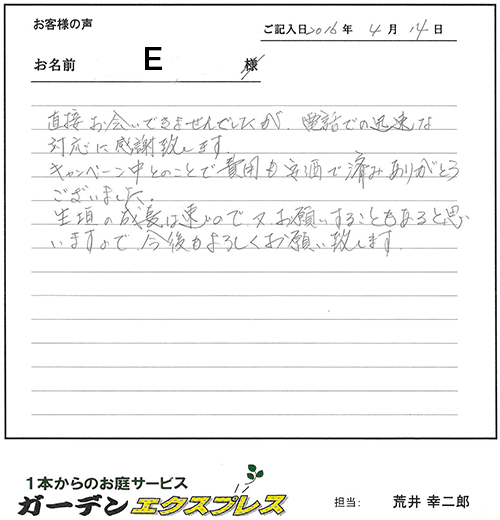 お客様の声
ご記入日 2016 年 4 月 14 日
お名前 E 様
直接お会いできませんでしたが、電話での迅速な
対応に感謝致します。
キャンペーン中とのことで費用も安価で済みありがとう
ございました。
生垣の成長は速いので又お願いすることもあると思
いますので、今後もよろしくお願い致します。
1本からのお庭サービス
ガーデンエクスプレス
担当: 荒井 幸二郎